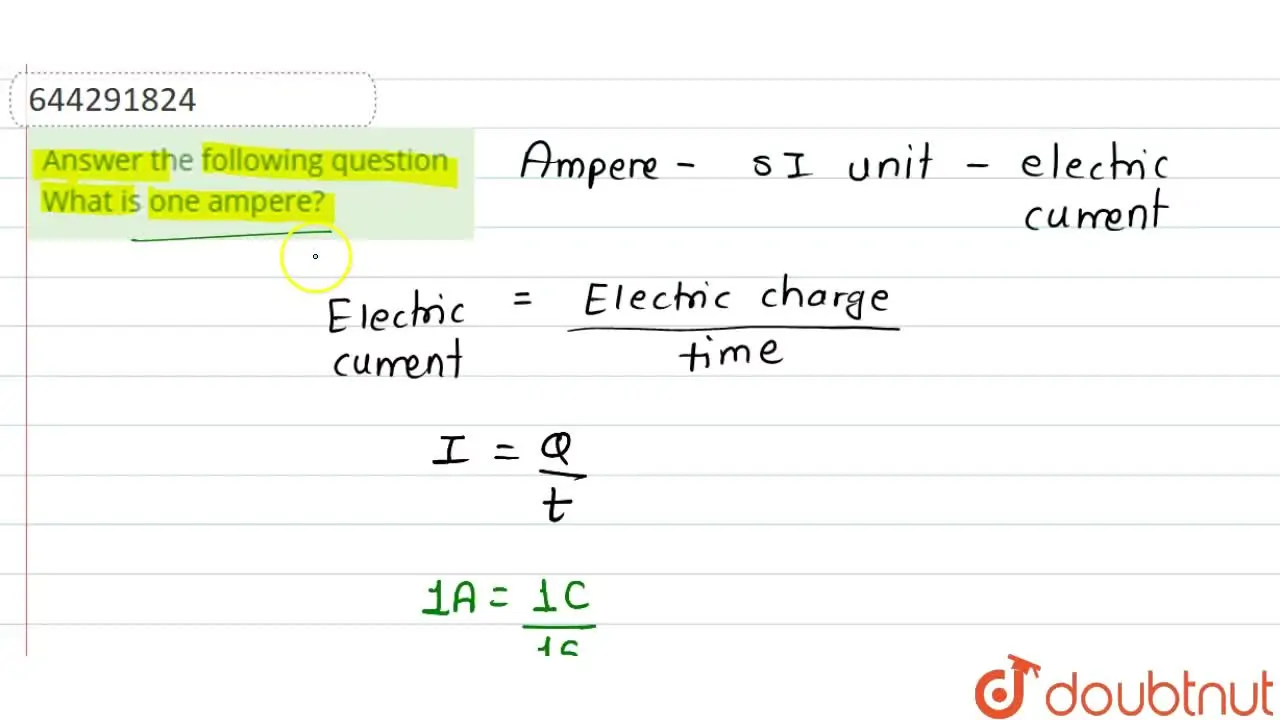 644291824
Answer the following question
What is one ampere?
Ampere - SI unit - electric
current
Electric current = Electric charge
time
I = Q
t
1A = 1C
1S
doubtnut